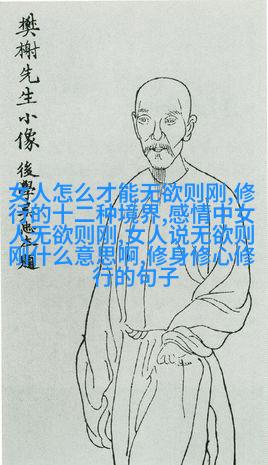 樊榭先生小像
後學
題
女人怎么才能无欲则刚,修
行的十二种境界,感情中女
人无欲则刚,女人说无欲则
刚什么意思啊,修身修心修
行的句子